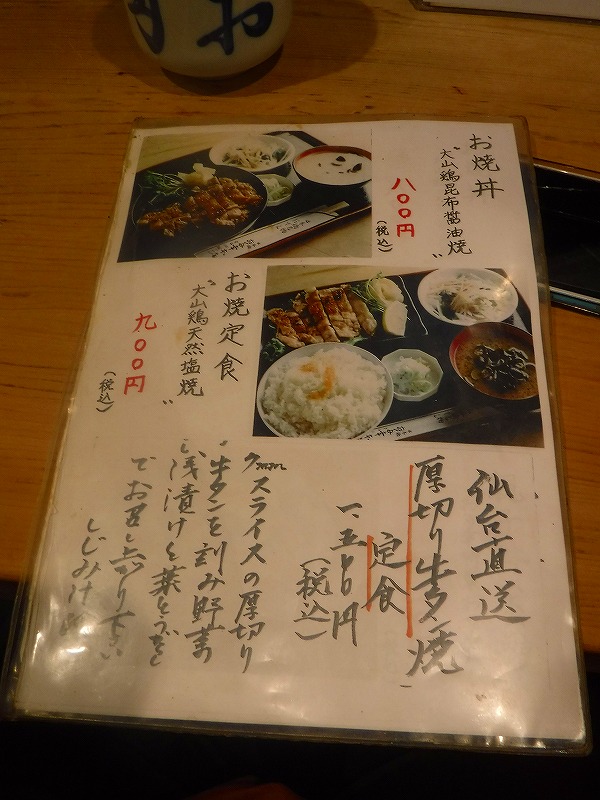 お焼丼
"大山鶏昆布醤油焼"
八〇〇円
(税込)
お焼定食
"大山鶏天然塩焼"
九〇〇円
(税込)
仙台直送
厚切り牛タン焼
定食
(税込)
スライスの厚切り
牛タンを刻み野菜の
浅漬けと
でお召し上がり下さい
しじみ汁
お